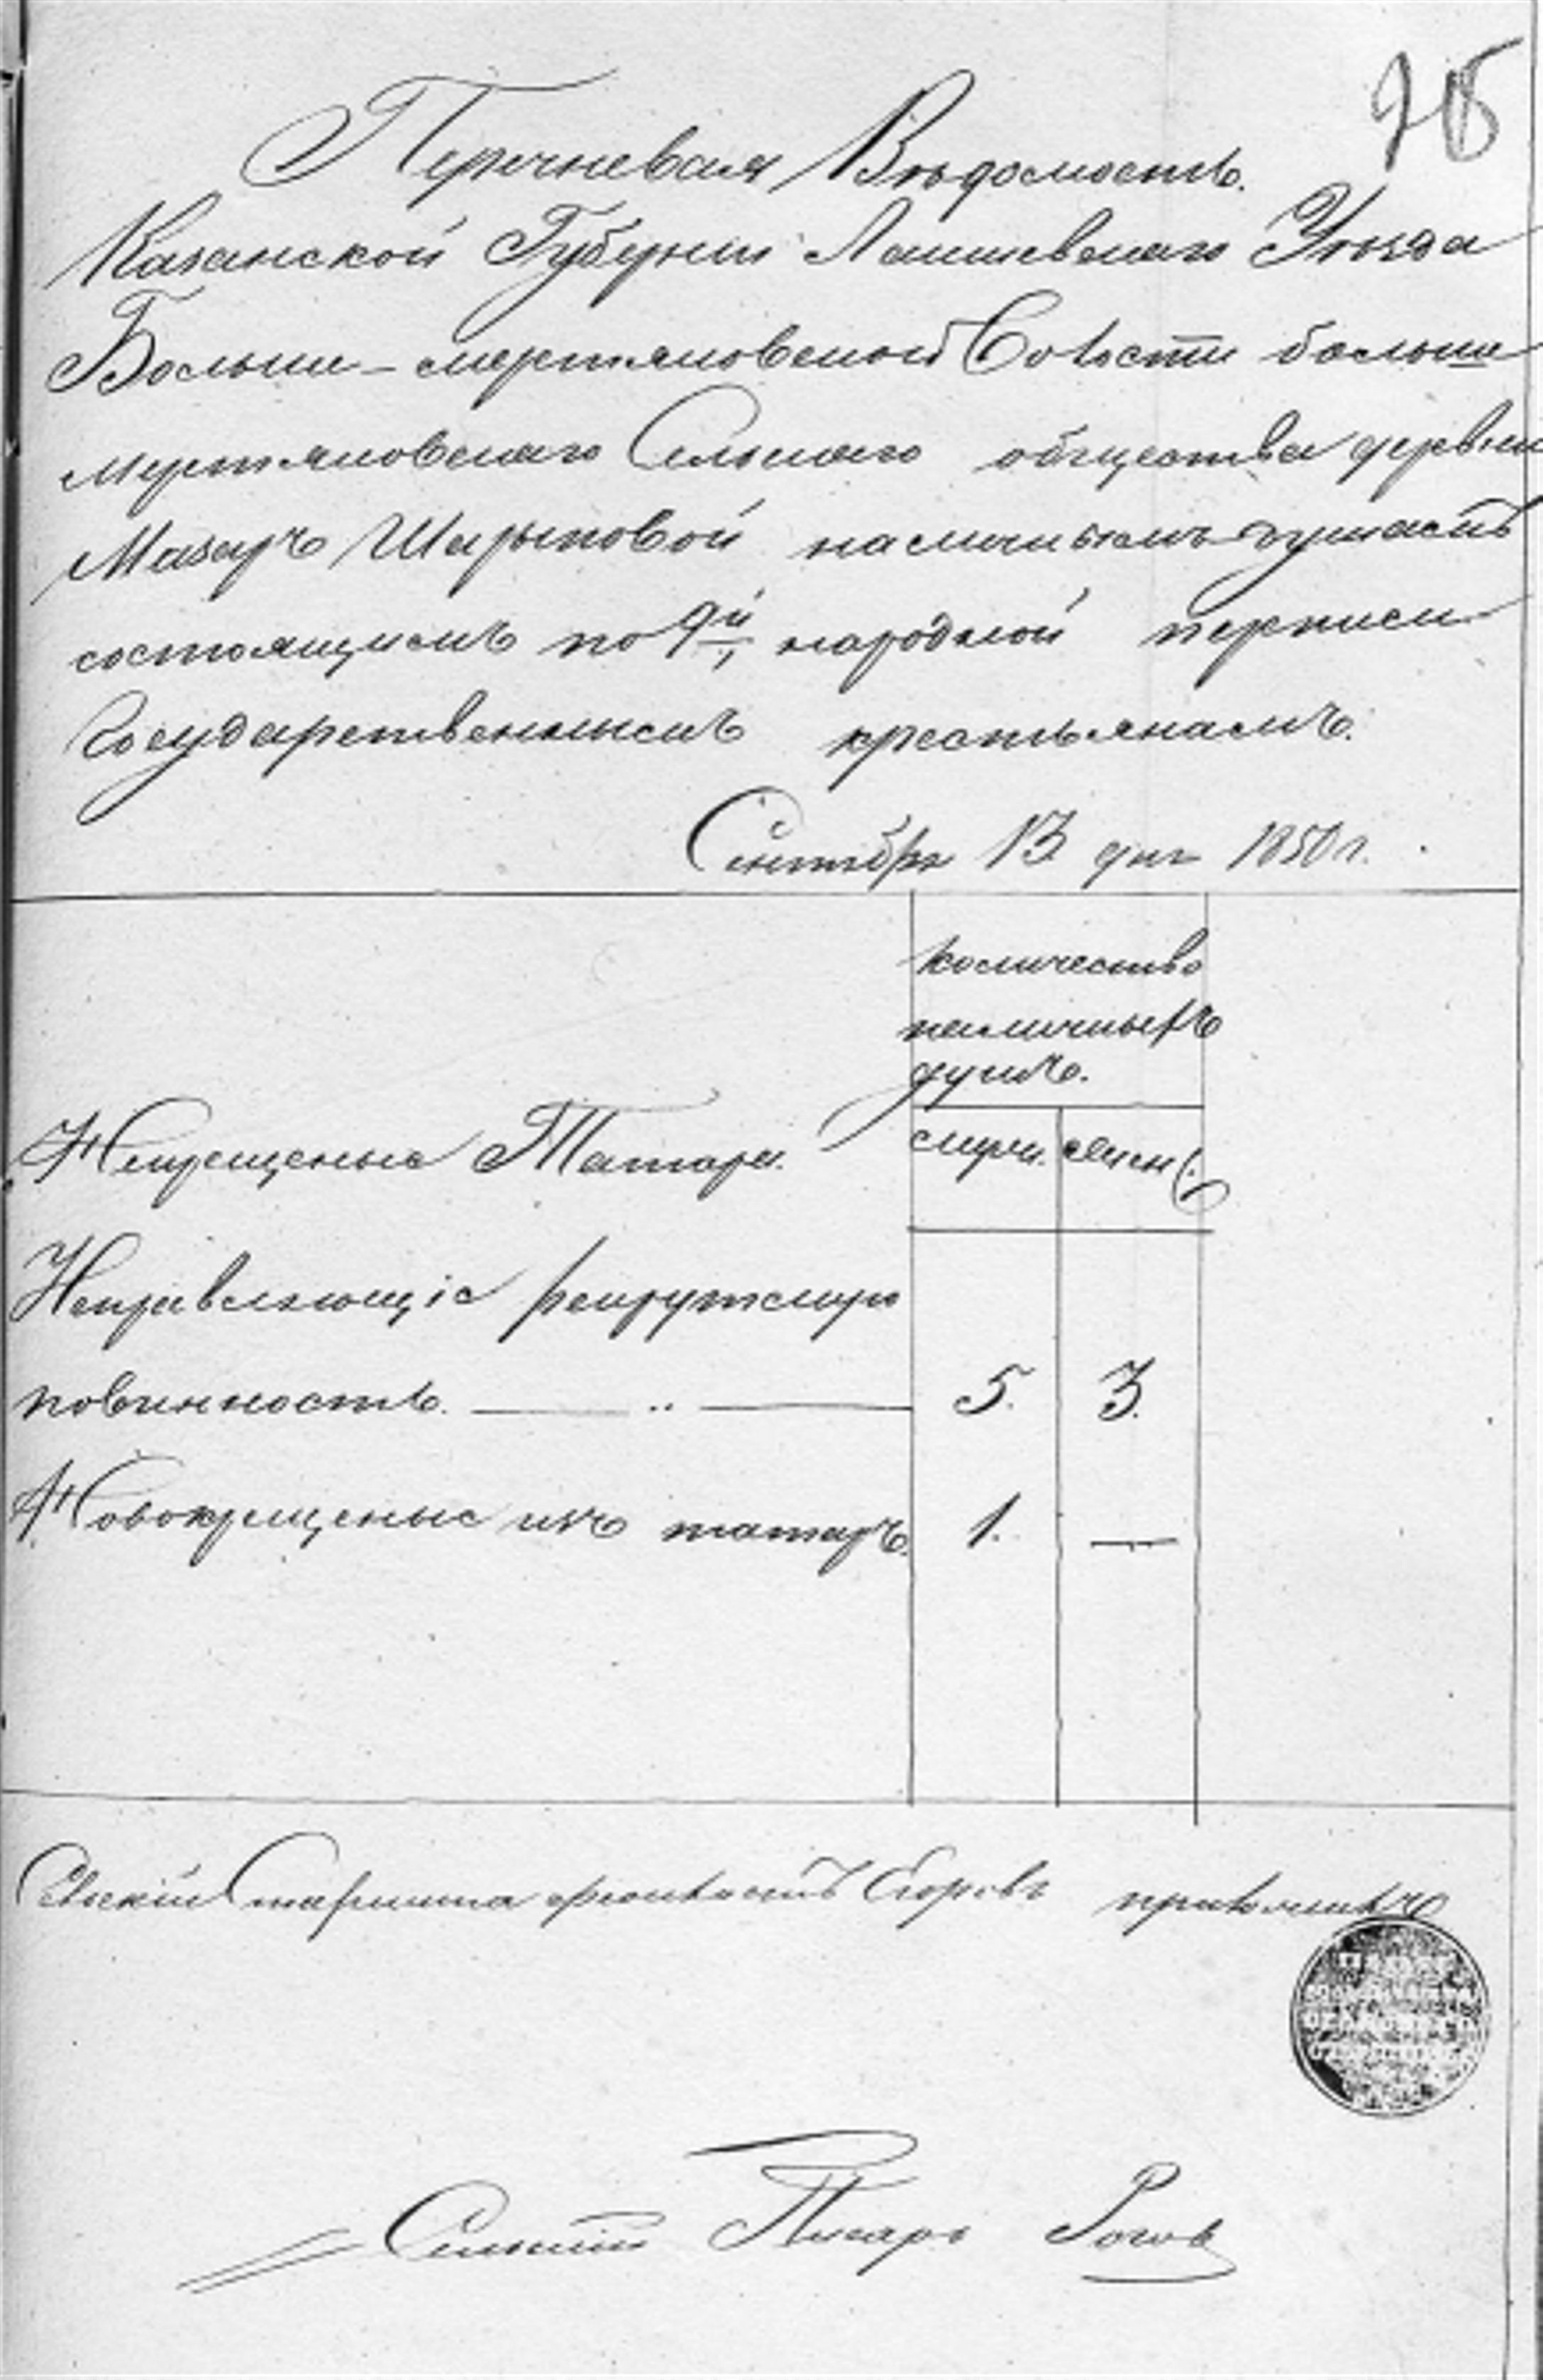 Перечневая Вѣдомость.
Казанской Губерніи Лаишевскаго Уѣзда
Больше-мертяковской Волости больше
мертяковскаго Сельскаго общества деревни
Мазаръ Шарыповой наличнымъ душамъ
состоящимъ по 9й народной переписи
Государственнымъ крестьянамъ.
Сентября 13 дня 1850 г.
количество
наличныхъ
душъ.
Некрещеные Татары.
муж. жен.
Неправляющіе рекрутскую
повинность. 5. 3.
Новокрещеные изъ татаръ. 1. —
Старшина Егоровъ
Сельскій Писарь Рогов